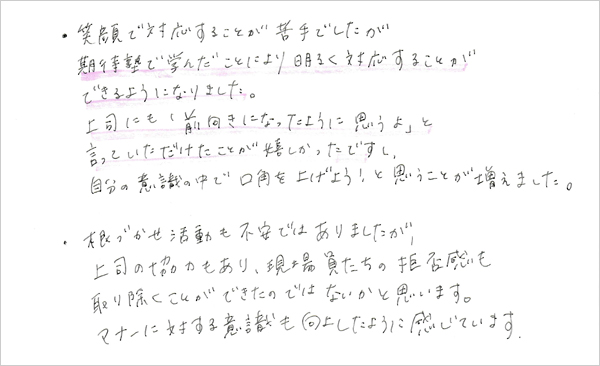 ・笑顔で対応することが苦手でしたが
期待塾で学んだことにより明るく対応することが
できるようになりました。
上司にも「前向きになったように思うよ」と
言っていただけたことが嬉しかったですし、
自分の意識の中で口角を上げよう!と思うことが増えました。
・根づかせ活動も不安ではありましたが、
上司の協力もあり、現場員たちの拒否感も
取り除くことができたのではないかと思います。
マナーに対する意識も向上したように感じています.